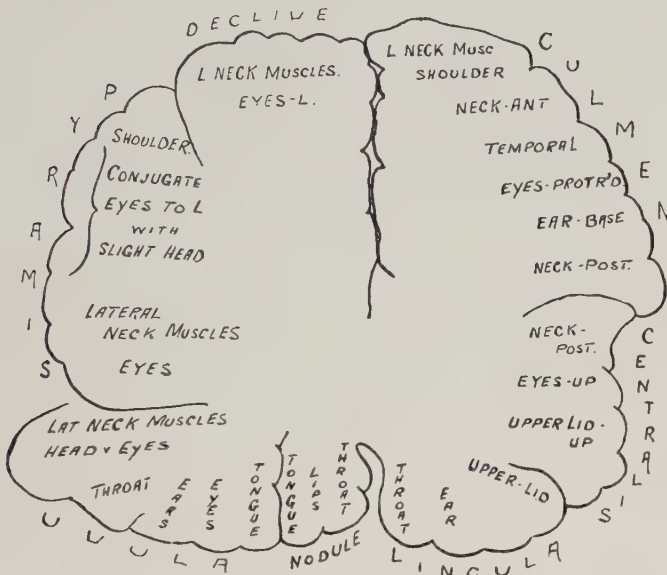 DECLIVE
L NECK MUSCLES.
EYES-L.
L NECK MUSC
SHOULDER
NECK-ANT
TEMPORAL
EYES-PROTR'D
EAR-BASE
NECK-POST.
CULMEN
PYRAMIS
SHOULDER.
CONJUGATE
EYES TO L
WITH
SLIGHT HEAD
LATERAL
NECK MUSCLES
EYES
NECK-
POST.
EYES-UP
UPPER LID-
UP
UPPER-LID
CENTRALIS
LAT NECK MUSCLES
HEAD & EYES
THROAT
EARS
EYES
TONGUE
TONGUE
LIPS
THROAT
THROAT
EAR
UVULA
NODULE
LINGULA